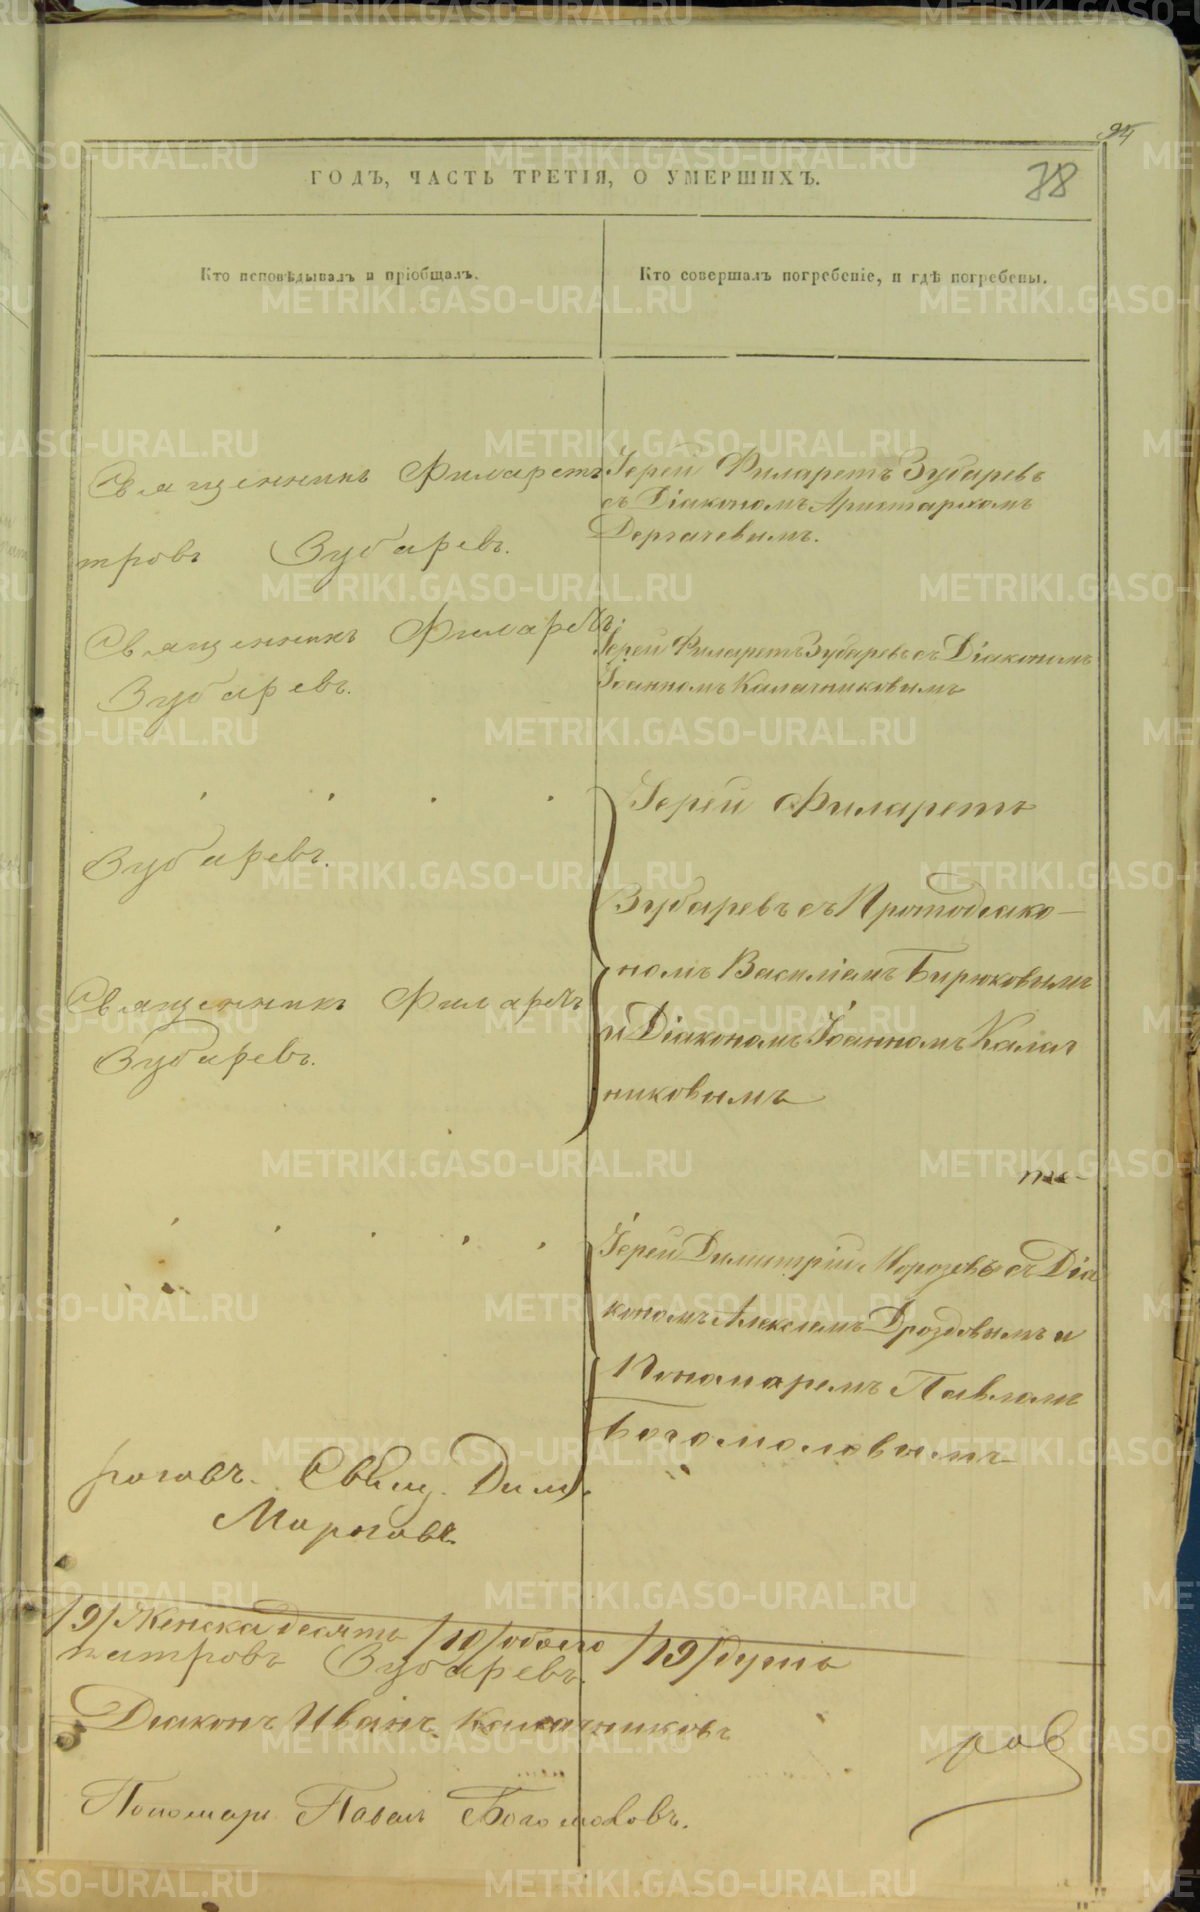 94
78
ГОДЪ, ЧАСТЬ ТРЕТІЯ, О УМЕРШИХЪ.
Кто исповѣдывалъ и пріобщалъ.
Кто совершалъ погребеніе, и гдѣ погребены.
Священникъ Филаретъ
тровъ Зубаревъ.
Іерей Филаретъ Зубаревъ
съ Діакономъ Аристархомъ
Дергачевымъ.
Священникъ Филаретъ
Зубаревъ.
Іерей Филаретъ Зубаревъ съ Діакономъ
Іоанномъ Калачниковымъ
Зубаревъ.
Священникъ Филаретъ
Зубаревъ.
Іерей Филаретъ
Зубаревъ съ Протодіако-
номъ Василіемъ Бирюковымъ
и Діакономъ Іоанномъ Калач
никовымъ
Іерей Димитрій Морозовъ съ Діа
кономъ Алексіемъ Дроздовымъ и
Пономаремъ Павломъ
Богомоловымъ
Свящ. Дим.
Морозовъ
/9/ Женска десять /10/ обоего /19/ душъ
Зубаревъ.
Діаконъ Иванъ Калачниковъ
ров
Пономарь Павелъ Богомоловъ.
METRIKI.GASO-URAL.RU